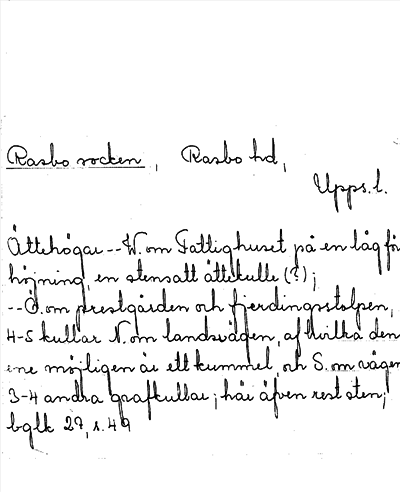 Rasbo socken, Rasbo hd,
Upps. l.
Ättehögar -- W. om Fattighuset på en låg för
höjning, en stensatt ättekulle (?);
-- Ö. om prestgården och fjerdingsstolpen,
4-5 kullar N. om landsvägen, af hvilka den
ene möjligen är ett kummel, och S. om vägen
3-4 andra grafkullar; här äfven rest sten;
bglk 29, s. 49